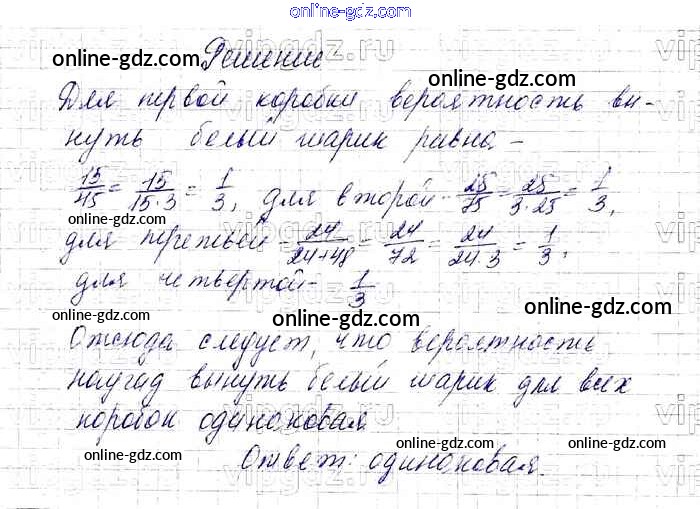 online-gdz.com
Решение
Для первой коробки вероятность вы-
нуть белый шарик равна -
15/45 = 15/15·3 = 1/3, для второй - 25/75 = 25/3·25 = 1/3,
для третьей - 24/24+48 = 24/72 = 24/24·3 = 1/3,
для четвертой - 1/3
Отсюда следует, что вероятность
наугад вынуть белый шарик для всех
коробок одинаковая
Ответ: одинаковая.
online-gdz.com
online-gdz.com
online-gdz.com
online-gdz.com
online-gdz.com
online-gdz.com
online-gdz.com
online-gdz.com
online-gdz.com
vipgdz.ru